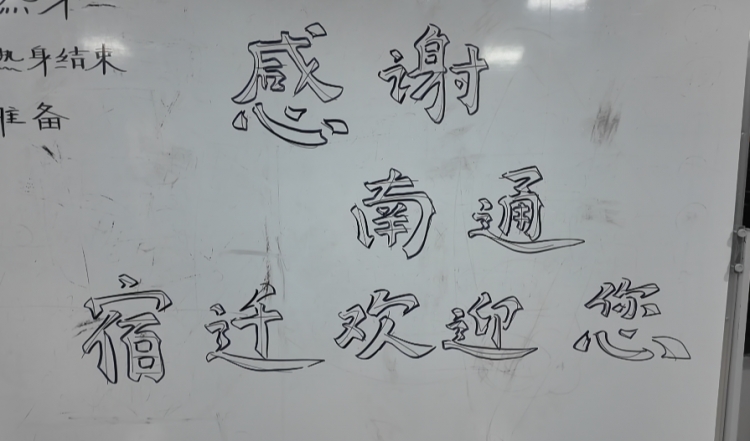 热身结束
准备
感谢
南通
宿迁欢迎您